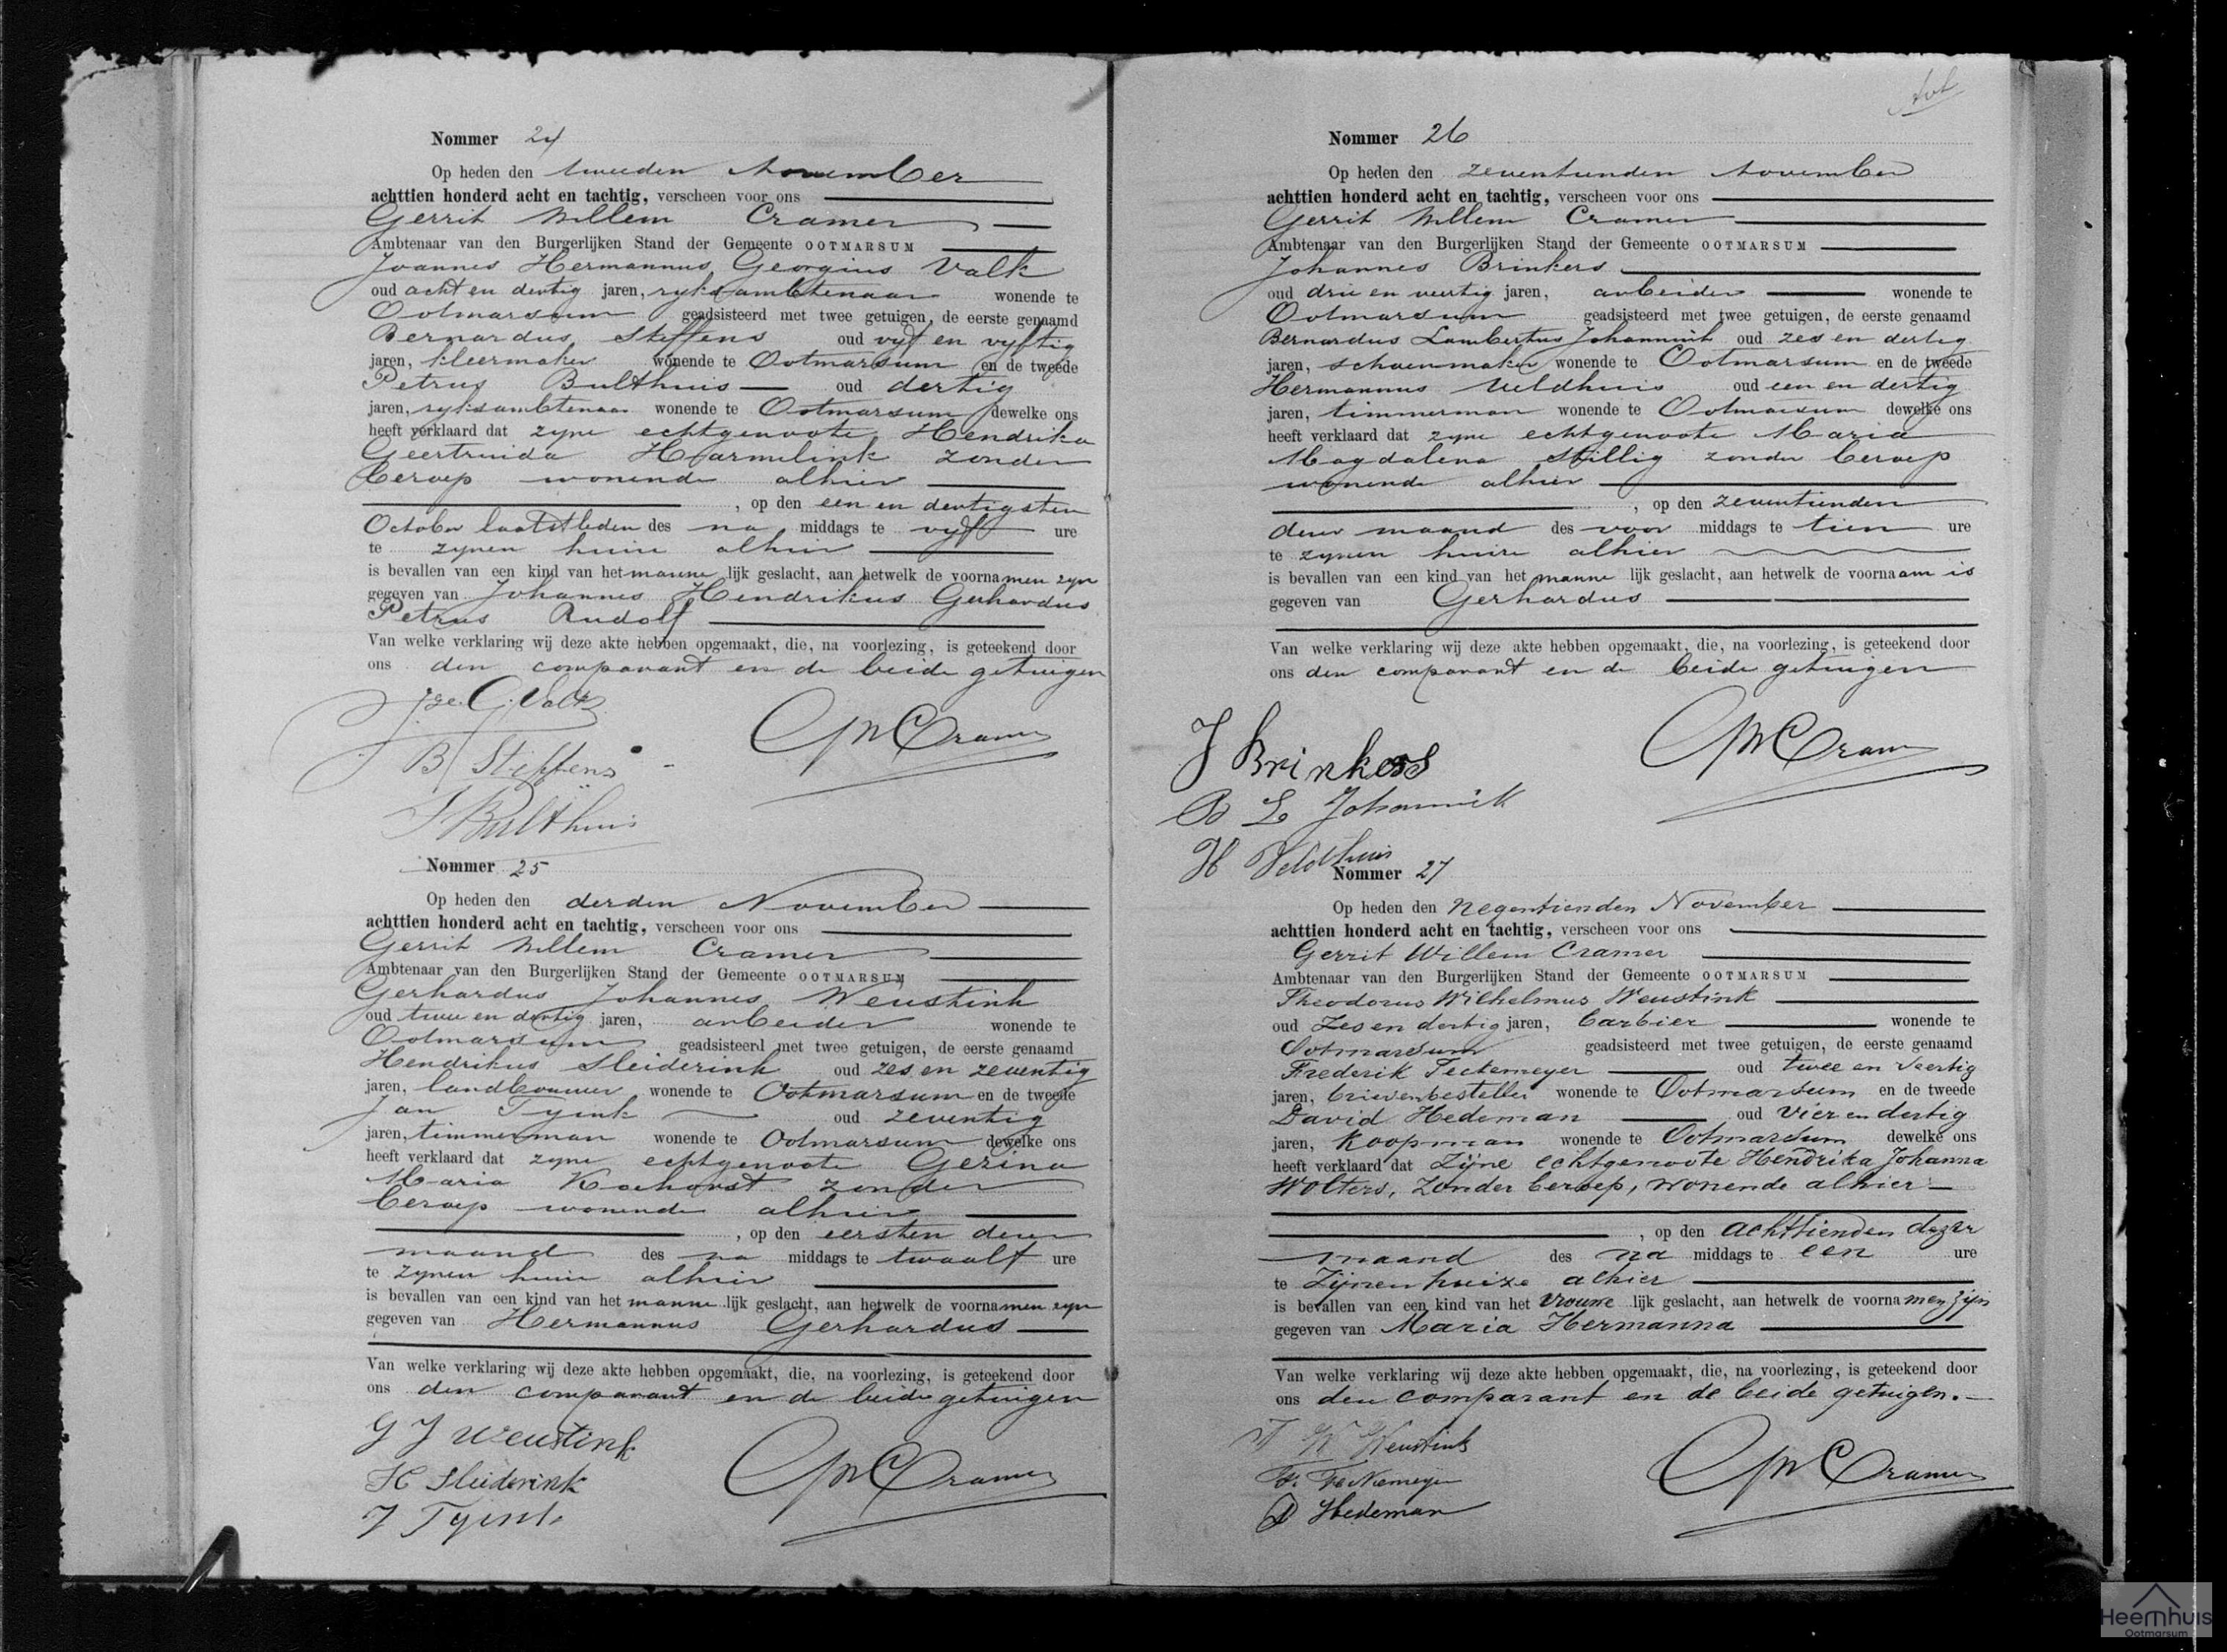 Nommer 24
Op heden den tweeden November
achttien honderd acht en tachtig, verscheen voor ons
Gerrit Willem Cramer
Ambtenaar van den Burgerlijken Stand der Gemeente OOTMARSUM
Joannes Hermannus Georgius Valk
oud acht en dertig jaren, ryksambtenaar wonende te
Ootmarsum geadsisteerd met twee getuigen, de eerste genaamd
Bernardus Steffens oud vyf en vyftig
jaren, kleermaker wonende te Ootmarsum en de tweede
Petrus Bulthuis oud dertig
jaren, ryksambtenaar wonende te Ootmarsum dewelke ons
heeft verklaard dat zyne echtgenoote Hendrika
Geertruida Harmelink zonder
beroep wonende alhier
, op den een en dertigsten
October laatstleden des na middags te vyf ure
te zynen huize alhier
is bevallen van een kind van het manne lijk geslacht, aan hetwelk de voornamen zyn
gegeven van Johannes Hendrikus Gerhardus
Petrus Rudolf
Van welke verklaring wij deze akte hebben opgemaakt, die, na voorlezing, is geteekend door
ons den comparant en de beide getuigen
Valk
GWCramer
B Steffens
Bulthuis
Nommer 25
Op heden den derden November
achttien honderd acht en tachtig, verscheen voor ons
Gerrit Willem Cramer
Ambtenaar van den Burgerlijken Stand der Gemeente OOTMARSUM
Gerhardus Johannes Weustink
oud twee en dertig jaren, arbeider wonende te
Ootmarsum geadsisteerd met twee getuigen, de eerste genaamd
Hendrikus Sleiderink oud zes en zeventig
jaren, landbouwer wonende te Ootmarsum en de tweede
Jan Tyink oud zeventig
jaren, timmerman wonende te Ootmarsum dewelke ons
heeft verklaard dat zyne echtgenoote Gezina
Maria Kachorst zonder
beroep wonende alhier
, op den eersten dezer
maand des na middags te twaalf ure
te zynen huize alhier
is bevallen van een kind van het manne lijk geslacht, aan hetwelk de voornamen zyn
gegeven van Hermannus Gerhardus
Van welke verklaring wij deze akte hebben opgemaakt, die, na voorlezing, is geteekend door
ons den comparant en de beide getuigen
G J Weustink
GWCramer
H Sleiderink
J Tyink
Nommer 26
Op heden den zeventienden November
achttien honderd acht en tachtig, verscheen voor ons
Gerrit Willem Cramer
Ambtenaar van den Burgerlijken Stand der Gemeente OOTMARSUM
Johannes Brinkers
oud drie en veertig jaren, arbeider wonende te
Ootmarsum geadsisteerd met twee getuigen, de eerste genaamd
Bernardus Lambertus Johannink oud zes en dertig
jaren, schoenmaker wonende te Ootmarsum en de tweede
Hermannus Veldhuis oud een en dertig
jaren, timmerman wonende te Ootmarsum dewelke ons
heeft verklaard dat zyne echtgenoote Maria
Magdalena Stillig zonder beroep
wonende alhier
, op den zeventienden
dezer maand des voor middags te tien ure
te zynen huize alhier
is bevallen van een kind van het manne lijk geslacht, aan hetwelk de voornaam is
gegeven van Gerhardus
Van welke verklaring wij deze akte hebben opgemaakt, die, na voorlezing, is geteekend door
ons den comparant en de beide getuigen
J Brinkers
GWCramer
B L Johannink
H Veldhuis
Nommer 27
Op heden den Negentienden November
achttien honderd acht en tachtig, verscheen voor ons
Gerrit Willem Cramer
Ambtenaar van den Burgerlijken Stand der Gemeente OOTMARSUM
Theodorus Wilhelmus Weustink
oud Zes en dertig jaren, barbier wonende te
Ootmarsum geadsisteerd met twee getuigen, de eerste genaamd
Frederik Teckemeyer oud twee en veertig
jaren, brievenbesteller wonende te Ootmarsum en de tweede
David Hedeman oud vier en dertig
jaren, koopman wonende te Ootmarsum dewelke ons
heeft verklaard dat Zijne echtgenoote Hendrika Johanna
Wolters, Zonder beroep, wonende alhier
, op den achttienden dezer
maand des na middags te een ure
te Zijnen huize alhier
is bevallen van een kind van het vrouwe lijk geslacht, aan hetwelk de voornamen zijn
gegeven van Maria Hermanna
Van welke verklaring wij deze akte hebben opgemaakt, die, na voorlezing, is geteekend door
ons den comparant en de beide getuigen.
T W Weustink
GWCramer
D Hedeman
Heemhuis
Ootmarsum